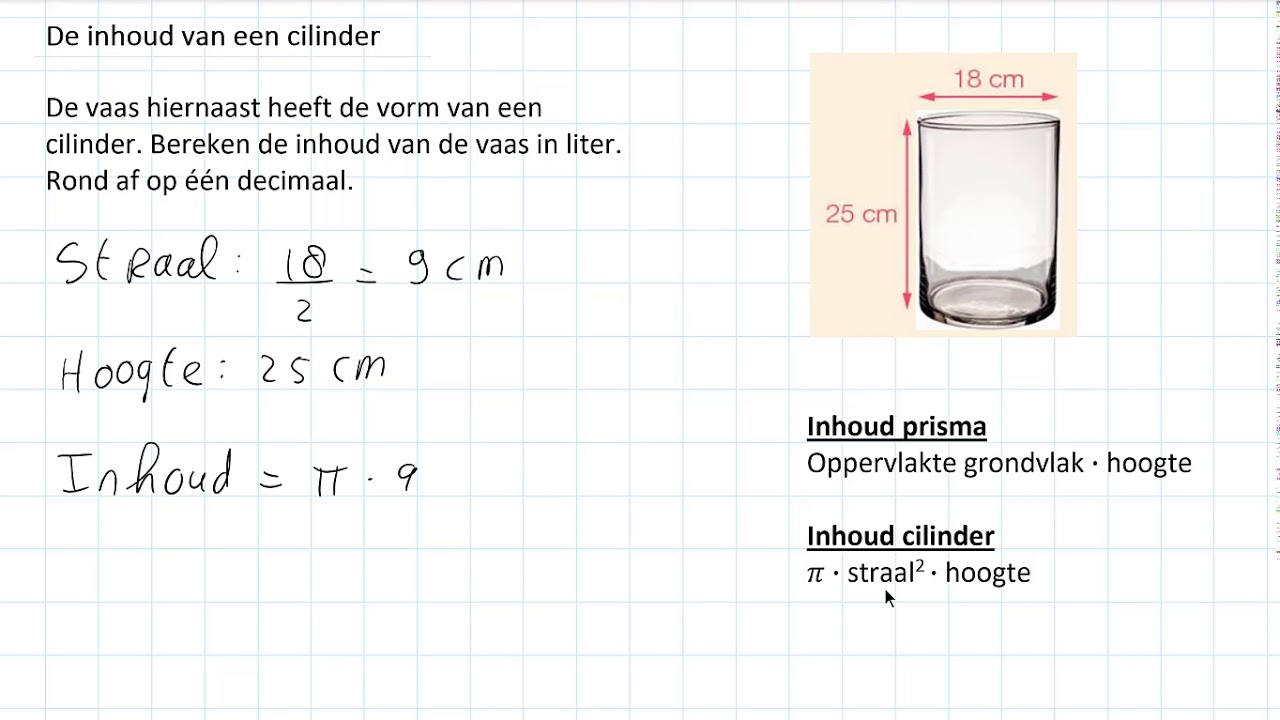 De inhoud van een cilinder
De vaas hiernaast heeft de vorm van een
cilinder. Bereken de inhoud van de vaas in liter.
Rond af op één decimaal.
Straal: 18/2 = 9 cm
Hoogte: 25 cm
Inhoud = π · 9
18 cm
25 cm
Inhoud prisma
Oppervlakte grondvlak · hoogte
Inhoud cilinder
π · straal² · hoogte